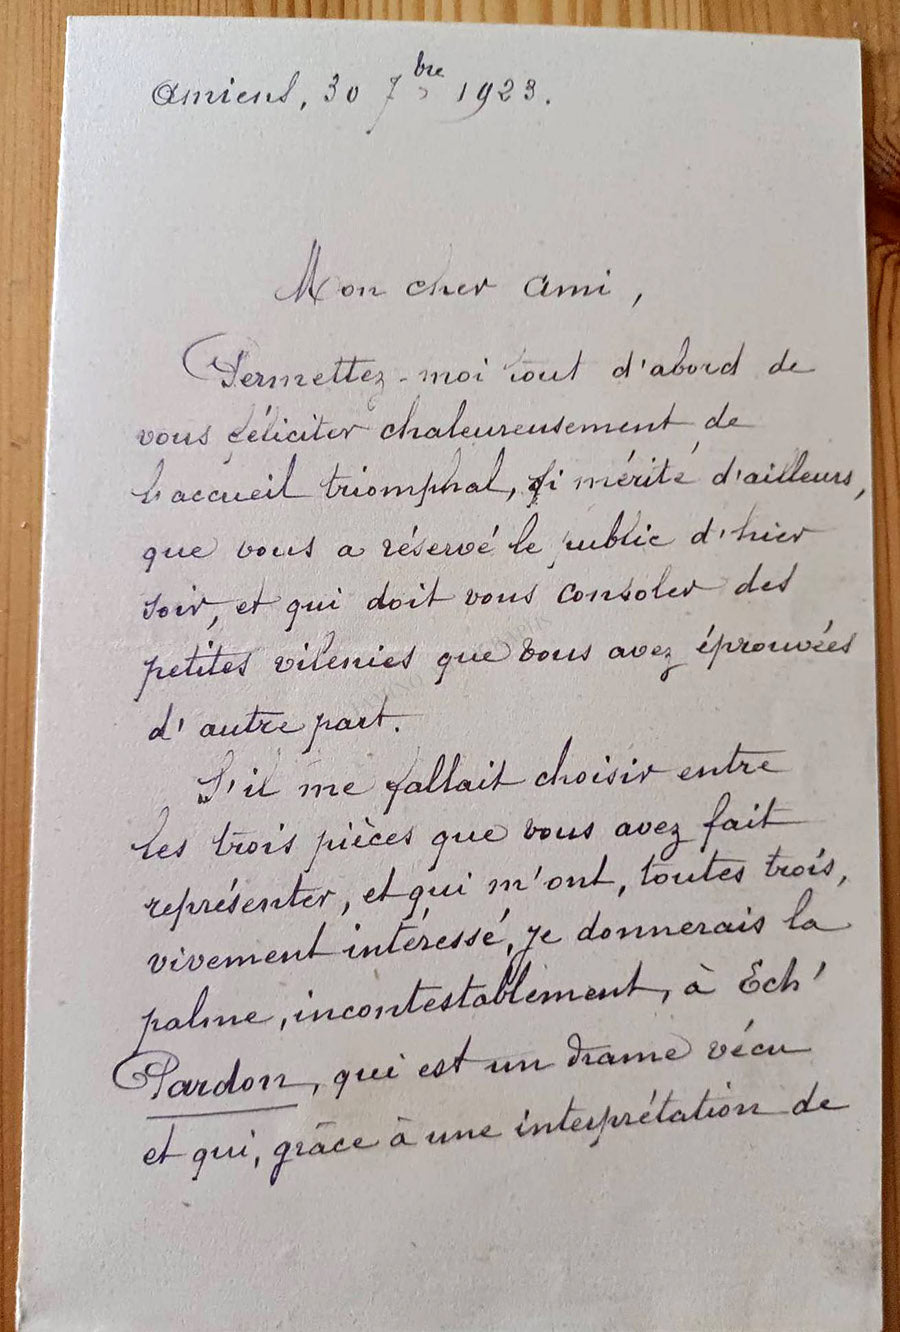 Amiens, 30 7bre 1923.
Mon cher Ami,
Permettez-moi tout d'abord de
vous féliciter chaleureusement de
l'accueil triomphal, si mérité d'ailleurs,
que vous a réservé le public d'hier
soir, et qui doit vous consoler des
petites vilenies que vous avez éprouvées
d'autre part.
S'il me fallait choisir entre
les trois pièces que vous avez fait
représenter, et qui m'ont, toutes trois,
vivement intéressé, je donnerais la
palme, incontestablement, à Ech'
Pardon, qui est un drame vécu
et qui, grâce à une interprétation de